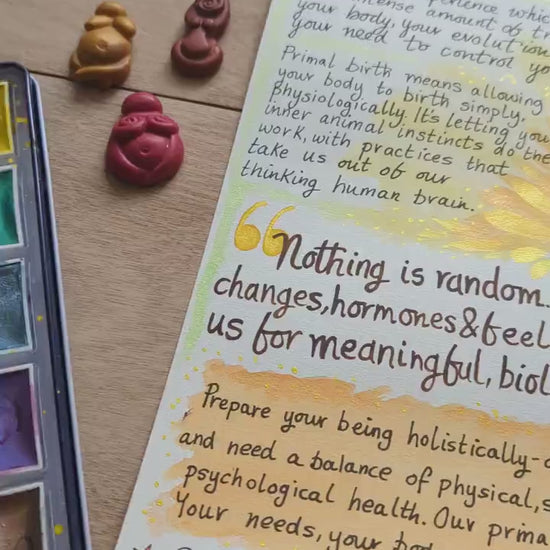 your body, your evolution
your need to control yo
Primal birth means allowing
your body to birth simply.
Physiologically. It's letting your
inner animal instincts do the
work, with practices that
take us out of our
thinking human brain.
“Nothing is random.
changes, hormones & feel
us for meaningful, biol
Prepare your being holistically-
and need a balance of physical, s
psychological health. Our prima
Your needs, your bod